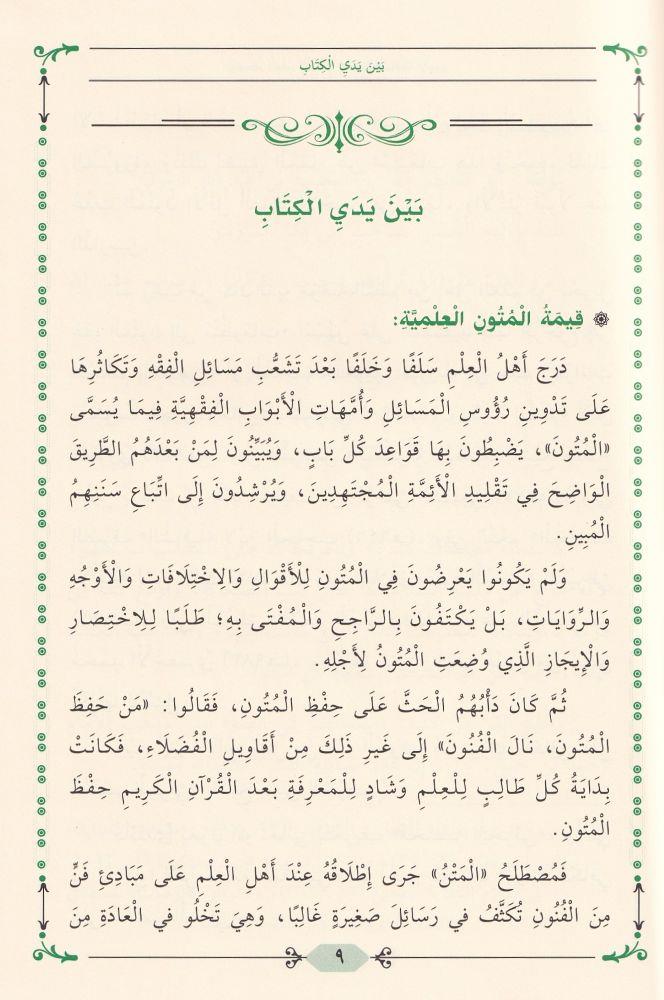 بَيْنَ يَدَيِ الْكِتَابِ
بَيْنَ يَدَيِ الْكِتَابِ
قِيمَةُ الْمُتُونِ الْعِلْمِيَّةِ:
دَرَجَ أَهْلُ الْعِلْمِ سَلَفًا وَخَلَفًا بَعْدَ تَشَعُّبِ مَسَائِلِ الْفِقْهِ وَتَكَاثُرِهَا
عَلَى تَدْوِينِ رُؤُوسِ الْمَسَائِلِ وَأُمَّهَاتِ الْأَبْوَابِ الْفِقْهِيَّةِ فِيمَا يُسَمَّى
«الْمُتُونَ»، يَضْبِطُونَ بِهَا قَوَاعِدَ كُلِّ بَابٍ، وَيُبَيِّنُونَ لِمَنْ بَعْدَهُمُ الطَّرِيقَ
الْوَاضِحَ فِي تَقْلِيدِ الْأَئِمَّةِ الْمُجْتَهِدِينَ، وَيُرْشِدُونَ إِلَى اتِّبَاعِ سَنَنِهِمُ
الْمُبِينِ.
وَلَمْ يَكُونُوا يَعْرِضُونَ فِي الْمُتُونِ لِلْأَقْوَالِ وَالِاخْتِلَافَاتِ وَالْأَوْجُهِ
وَالرِّوَايَاتِ، بَلْ يَكْتَفُونَ بِالرَّاجِحِ وَالْمُفْتَى بِهِ؛ طَلَبًا لِلِاخْتِصَارِ
وَالْإِيجَازِ الَّذِي وُضِعَتِ الْمُتُونُ لِأَجْلِهِ.
ثُمَّ كَانَ دَأْبُهُمُ الْحَثَّ عَلَى حِفْظِ الْمُتُونِ، فَقَالُوا: «مَنْ حَفِظَ
الْمُتُونَ، نَالَ الْفُنُونَ» إِلَى غَيْرِ ذَلِكَ مِنْ أَقَاوِيلِ الْفُضَلَاءِ، فَكَانَتْ
بِدَايَةُ كُلِّ طَالِبٍ لِلْعِلْمِ وَشَادٍ لِلْمَعْرِفَةِ بَعْدَ الْقُرْآنِ الْكَرِيمِ حِفْظَ
الْمُتُونِ.
فَمُصْطَلَحُ «الْمَتْنُ» جَرَى إِطْلَاقُهُ عِنْدَ أَهْلِ الْعِلْمِ عَلَى مَبَادِئِ فَنٍّ
مِنَ الْفُنُونِ تُكَثَّفُ في رَسَائِلَ صَغِيرَةٍ غَالِبًا، وَهِيَ تَخْلُو في الْعَادَةِ مِنَ
٩